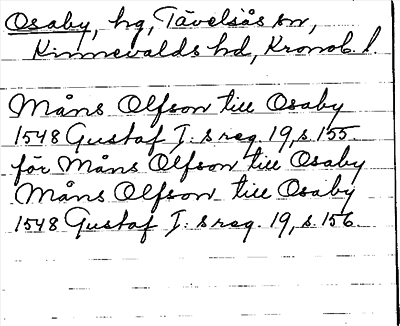 Osaby, hg, Tävelsås sn,
Kinnevalds hd, Kronob. l.
Måns Olfson till Osaby
1548 Gustaf I: s reg. 19, s. 155.
för Måns Olfson till Osaby
Måns Olfson till Osaby
1548 Gustaf I: s reg. 19, s. 156.